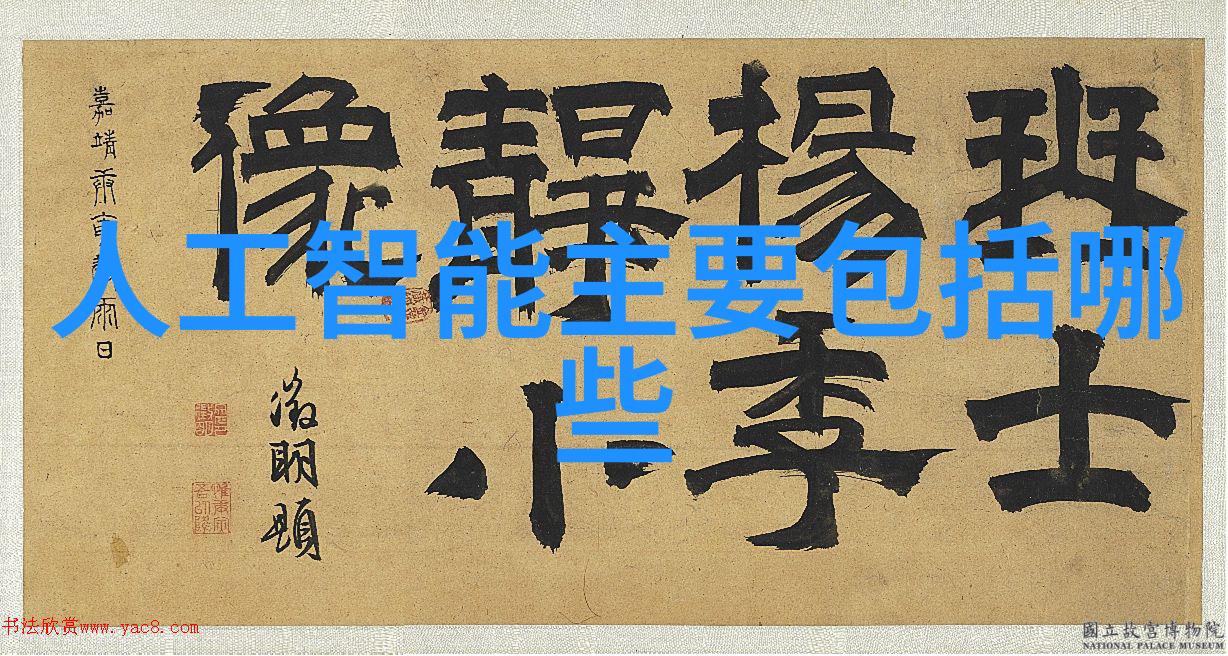 人工智能主要包括哪
些
琴士
楊季
靜小
像
徵明題
嘉靖庚寅
日
书法欣赏www.yac8.com
國立故宮博物院
NATIONAL PALACE MUSEUM